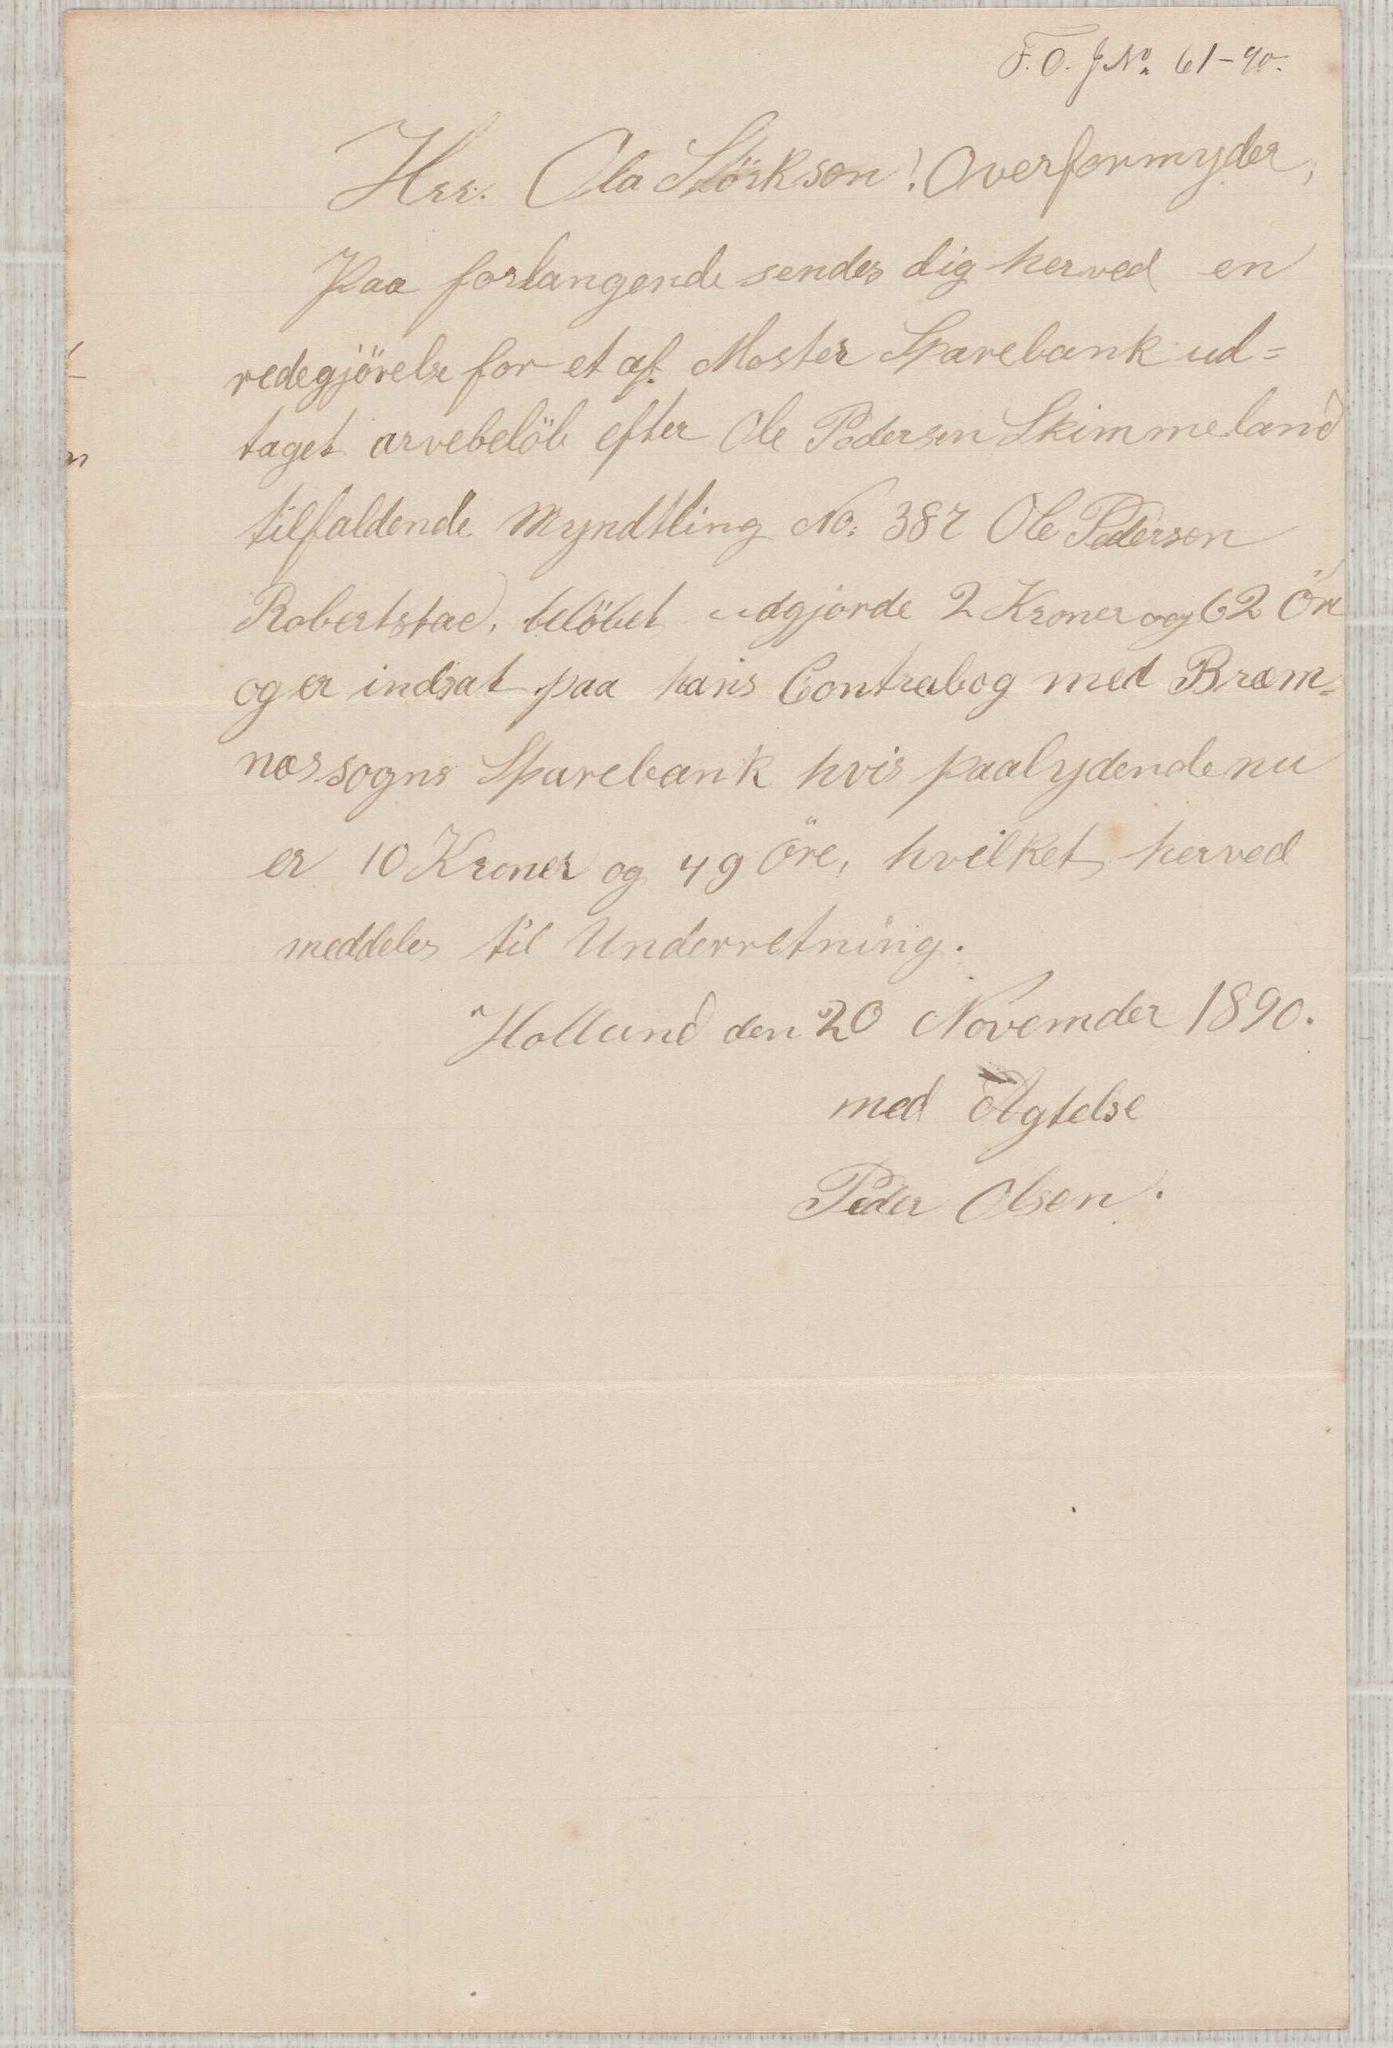 F. O. J No. 61-90.
Hrr. Ola Störkson! Overformynder,
Paa forlangende sendes dig herved en
redegjörelse for et af Moster Sparebank ud=
taget arvebelöb efter Ole Pedersen Skimmeland
tilfaldende Myndtling No: 387 Ole Pedersen
Robertstad, belöbet udgjorde 2 Kroner og 62 Öre
og er indsat paa hans Contrabog med Bræm=
næs sogns Sparebank hvis paalydende nu
er 10 Kroner og 49 Öre, hvilket herved
meddeles til Underretning.
Hollund den 20 Novemder 1890.
med Agtelse
Peder Olsen.